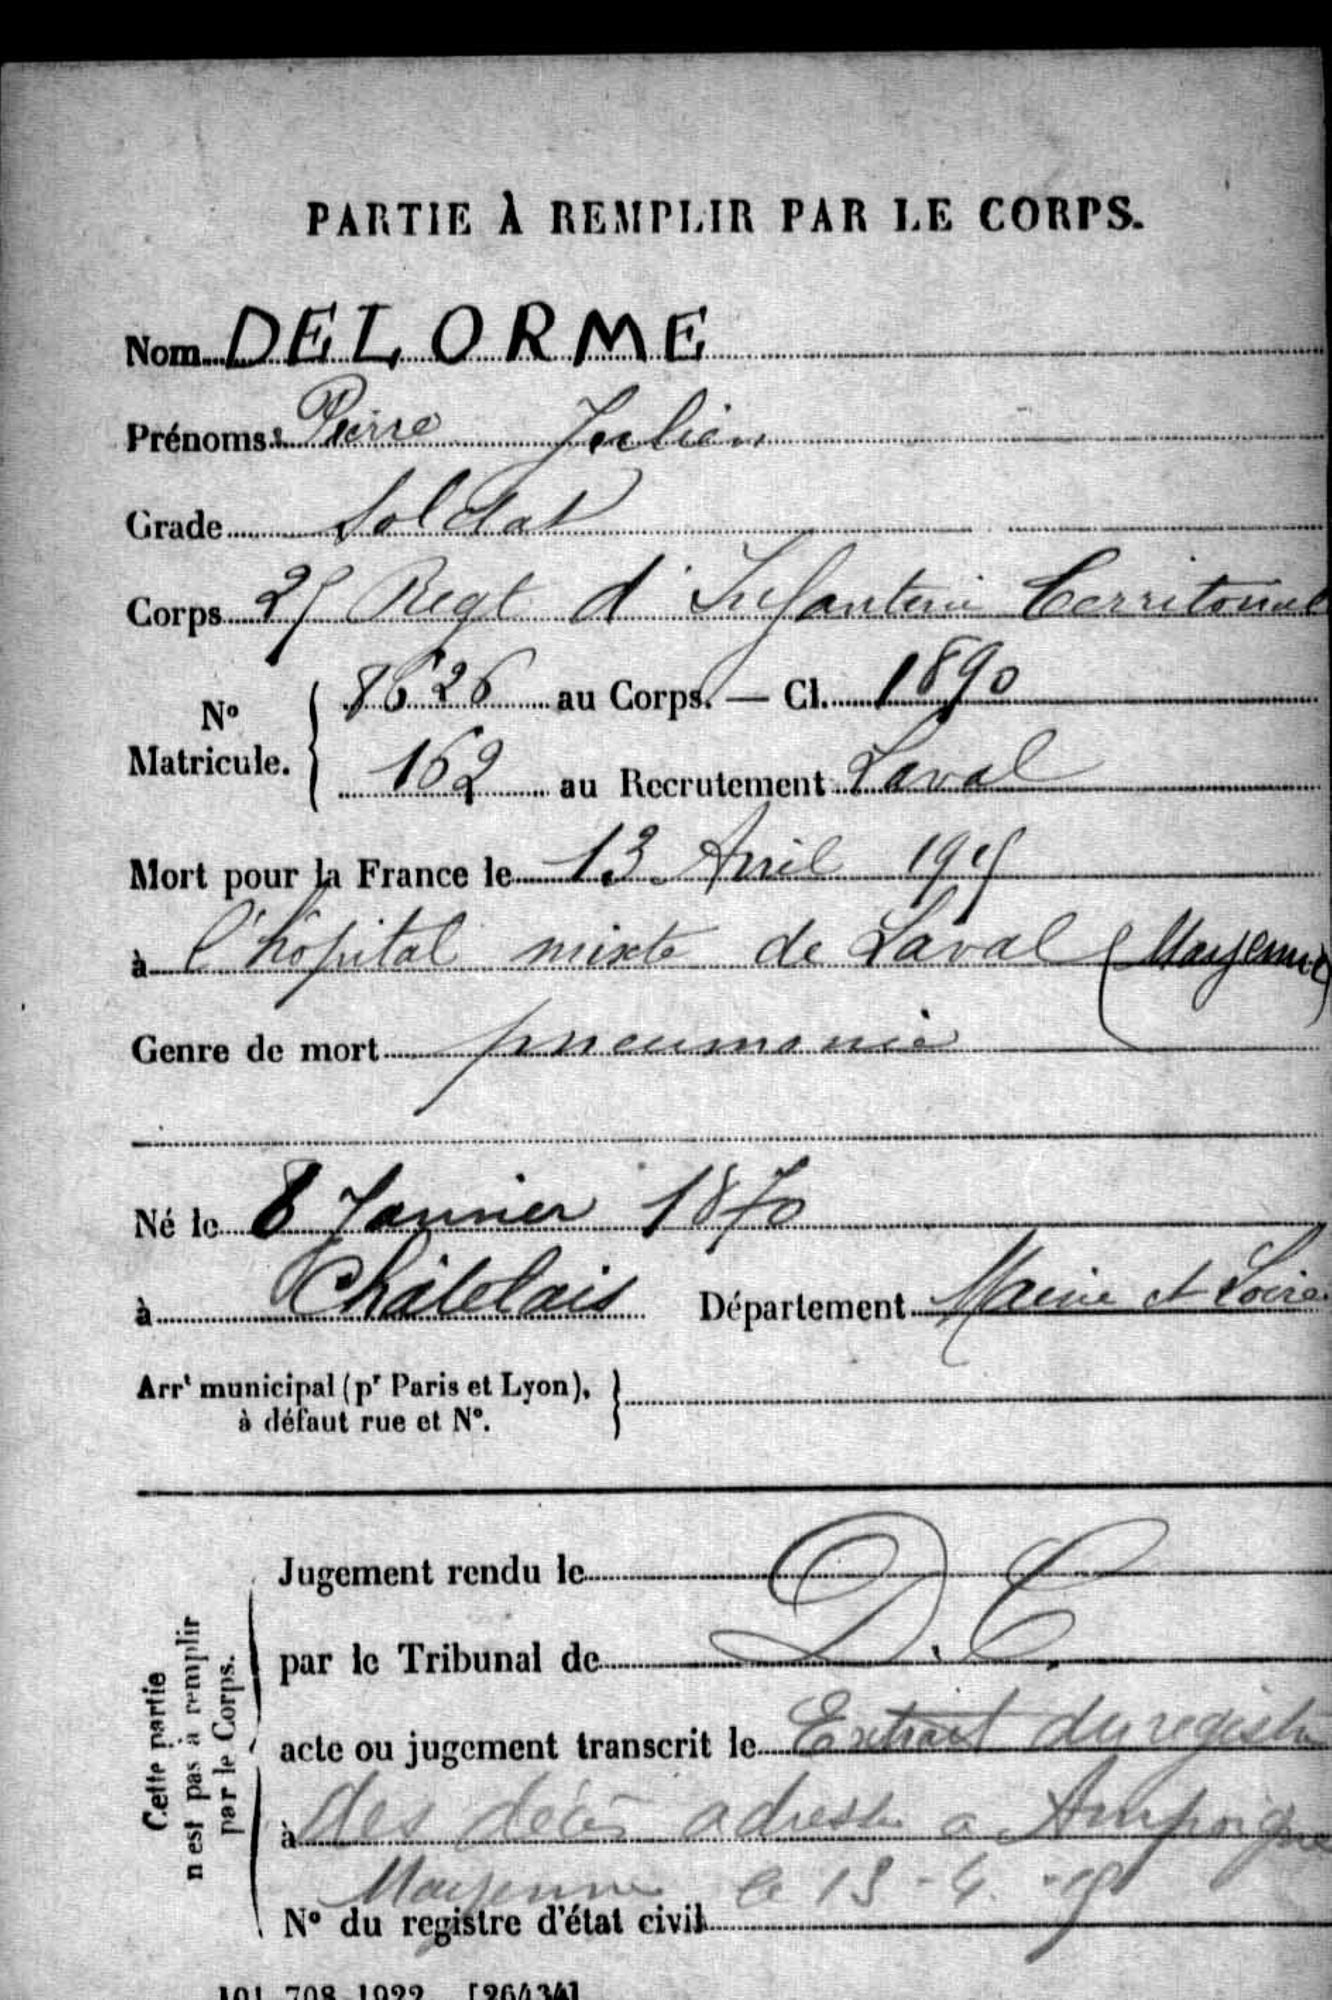 PARTIE À REMPLIR PAR LE CORPS.
Nom DELORME
Prénoms : Pierre Julien
Grade Soldat
Corps 25 Regt d'Infanterie Territorial
N° Matricule. { 8626 au Corps. — Cl. 1890
162 au Recrutement Laval
Mort pour la France le 13 Avril 1915
à l'hôpital mixte de Laval (Mayenne)
Genre de mort pneumonie
Né le 8 Janvier 1870
à Châtelais Département Maine et Loire
Arrt municipal (pr Paris et Lyon), }
à défaut rue et N°.
Cette partie
n'est pas à remplir
par le Corps.
Jugement rendu le
par le Tribunal de D.C.
acte ou jugement transcrit le Extrait du registre
à des décès adressé a Ampoigné
Mayenne le 15-4-15
N° du registre d'état civil
101.708.1922. [26434]